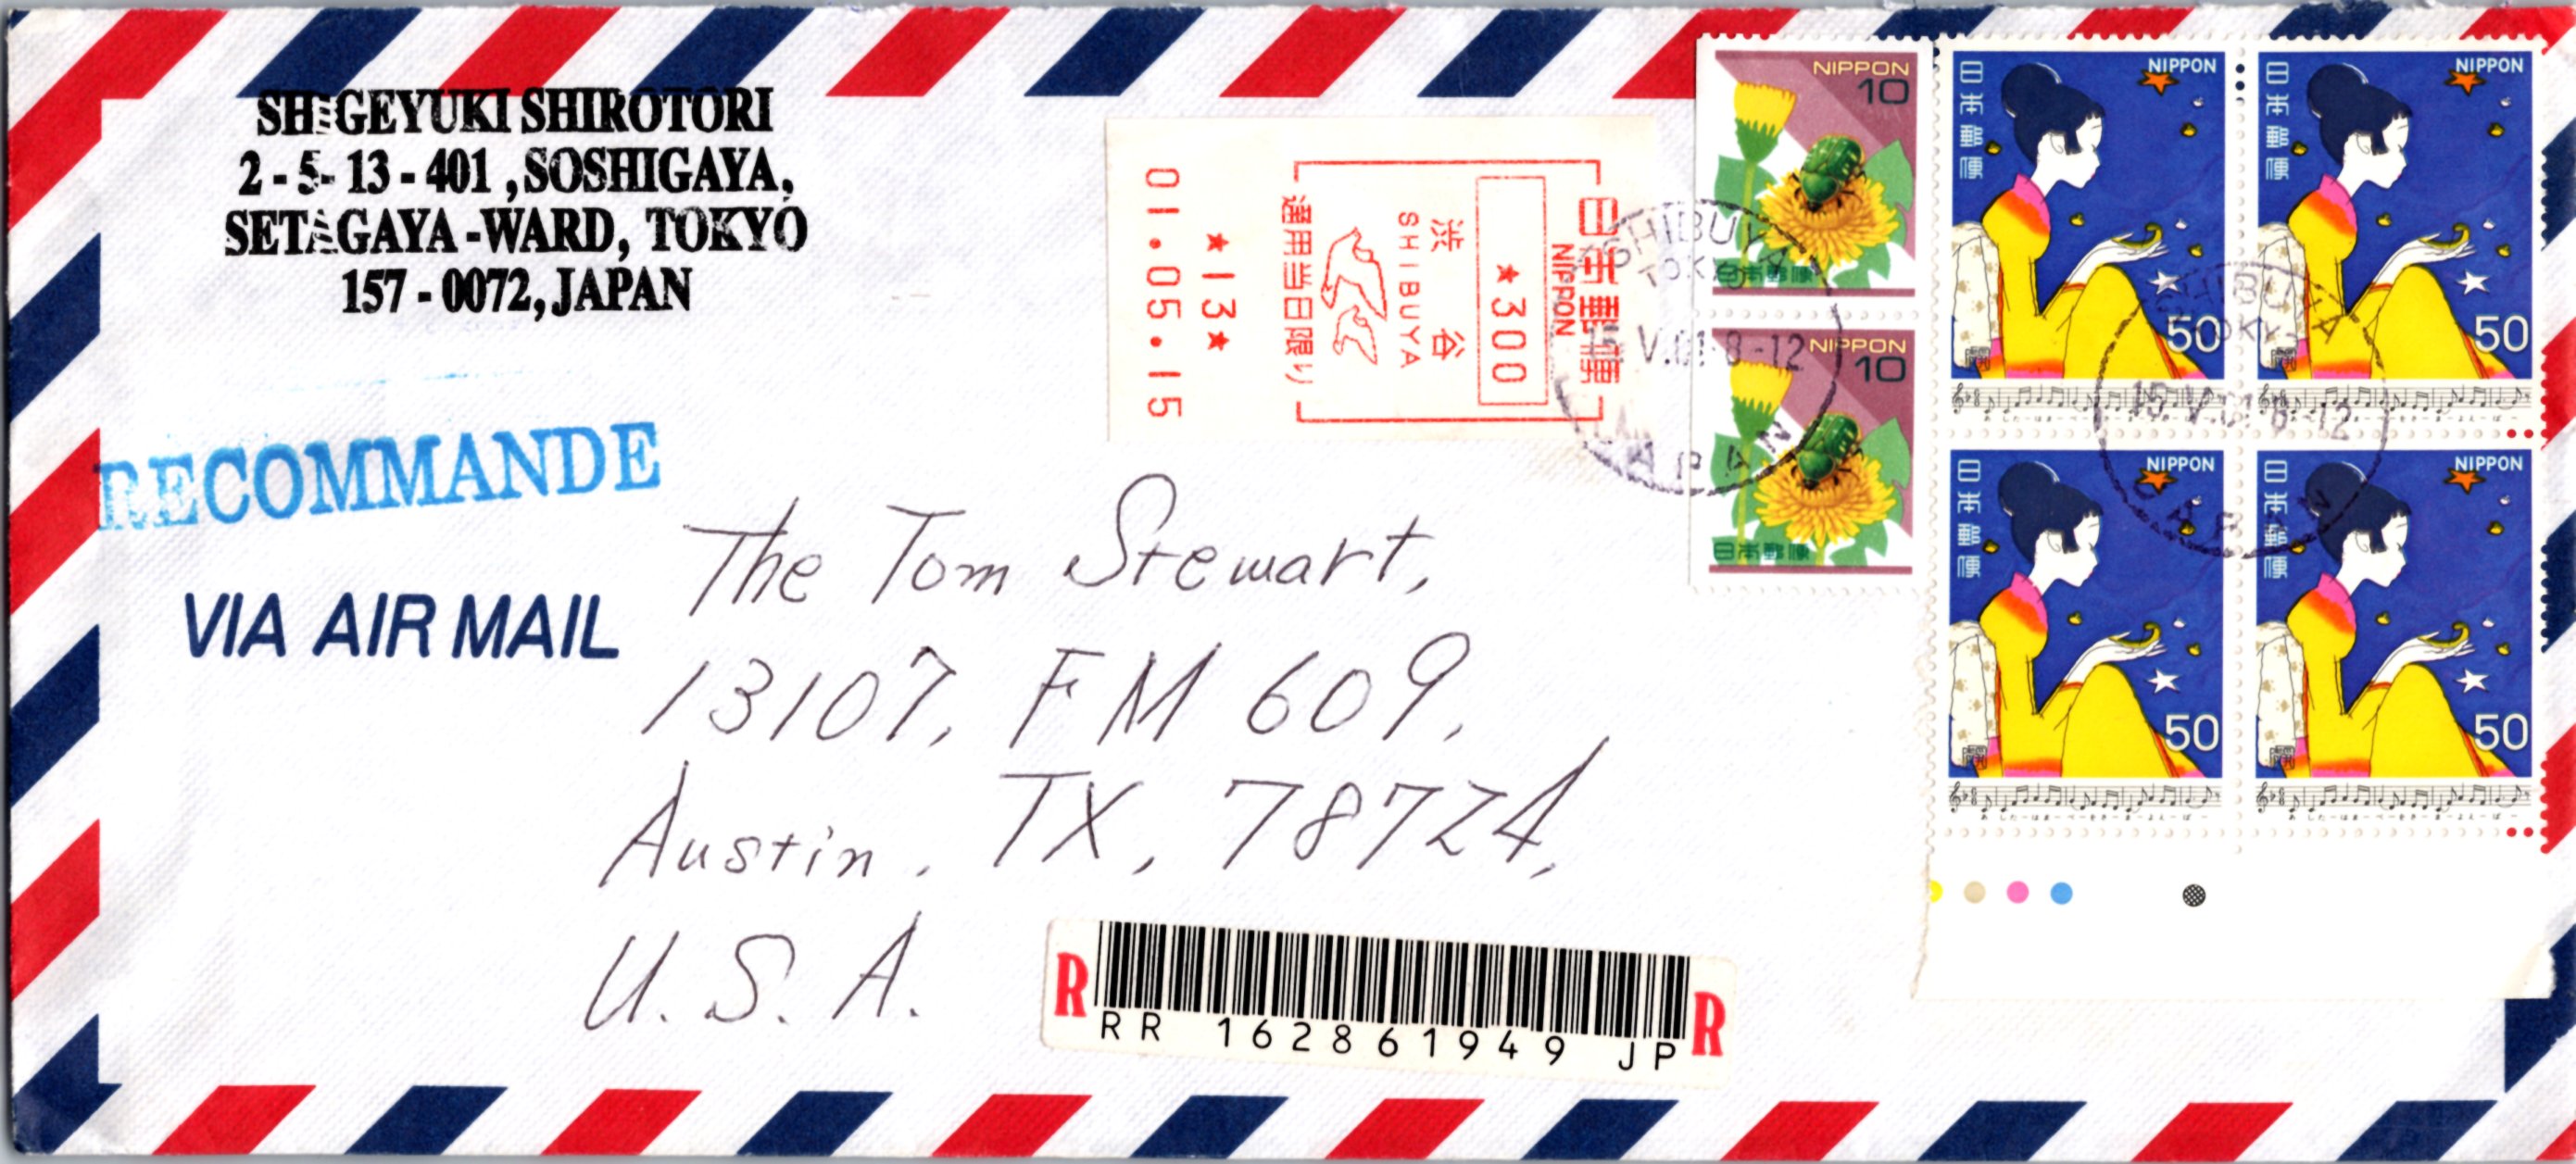 SHIGEYUKI SHIROTORI
2-5-13-401, SOSHIGAYA,
SETAGAYA-WARD, TOKYO
157-0072, JAPAN
RECOMMANDE
VIA AIR MAIL
The Tom Stewart,
13107, FM 609,
Austin, TX, 78724,
U.S.A.
日本郵便
NIPPON
*300
渋谷
SHIBUYA
通用当日限り
*13*
01.05.15
NIPPON
10
日本郵便
NIPPON
10
日本郵便
SHIBUYA
TOKYO
V.01 8-12
JAPAN
日本郵便
NIPPON
50
日本郵便
NIPPON
50
SHIBUYA
TOKYO
15.V.01 8-12
JAPAN
日本郵便
NIPPON
50
日本郵便
NIPPON
50
R
RR 162861949 JP
R